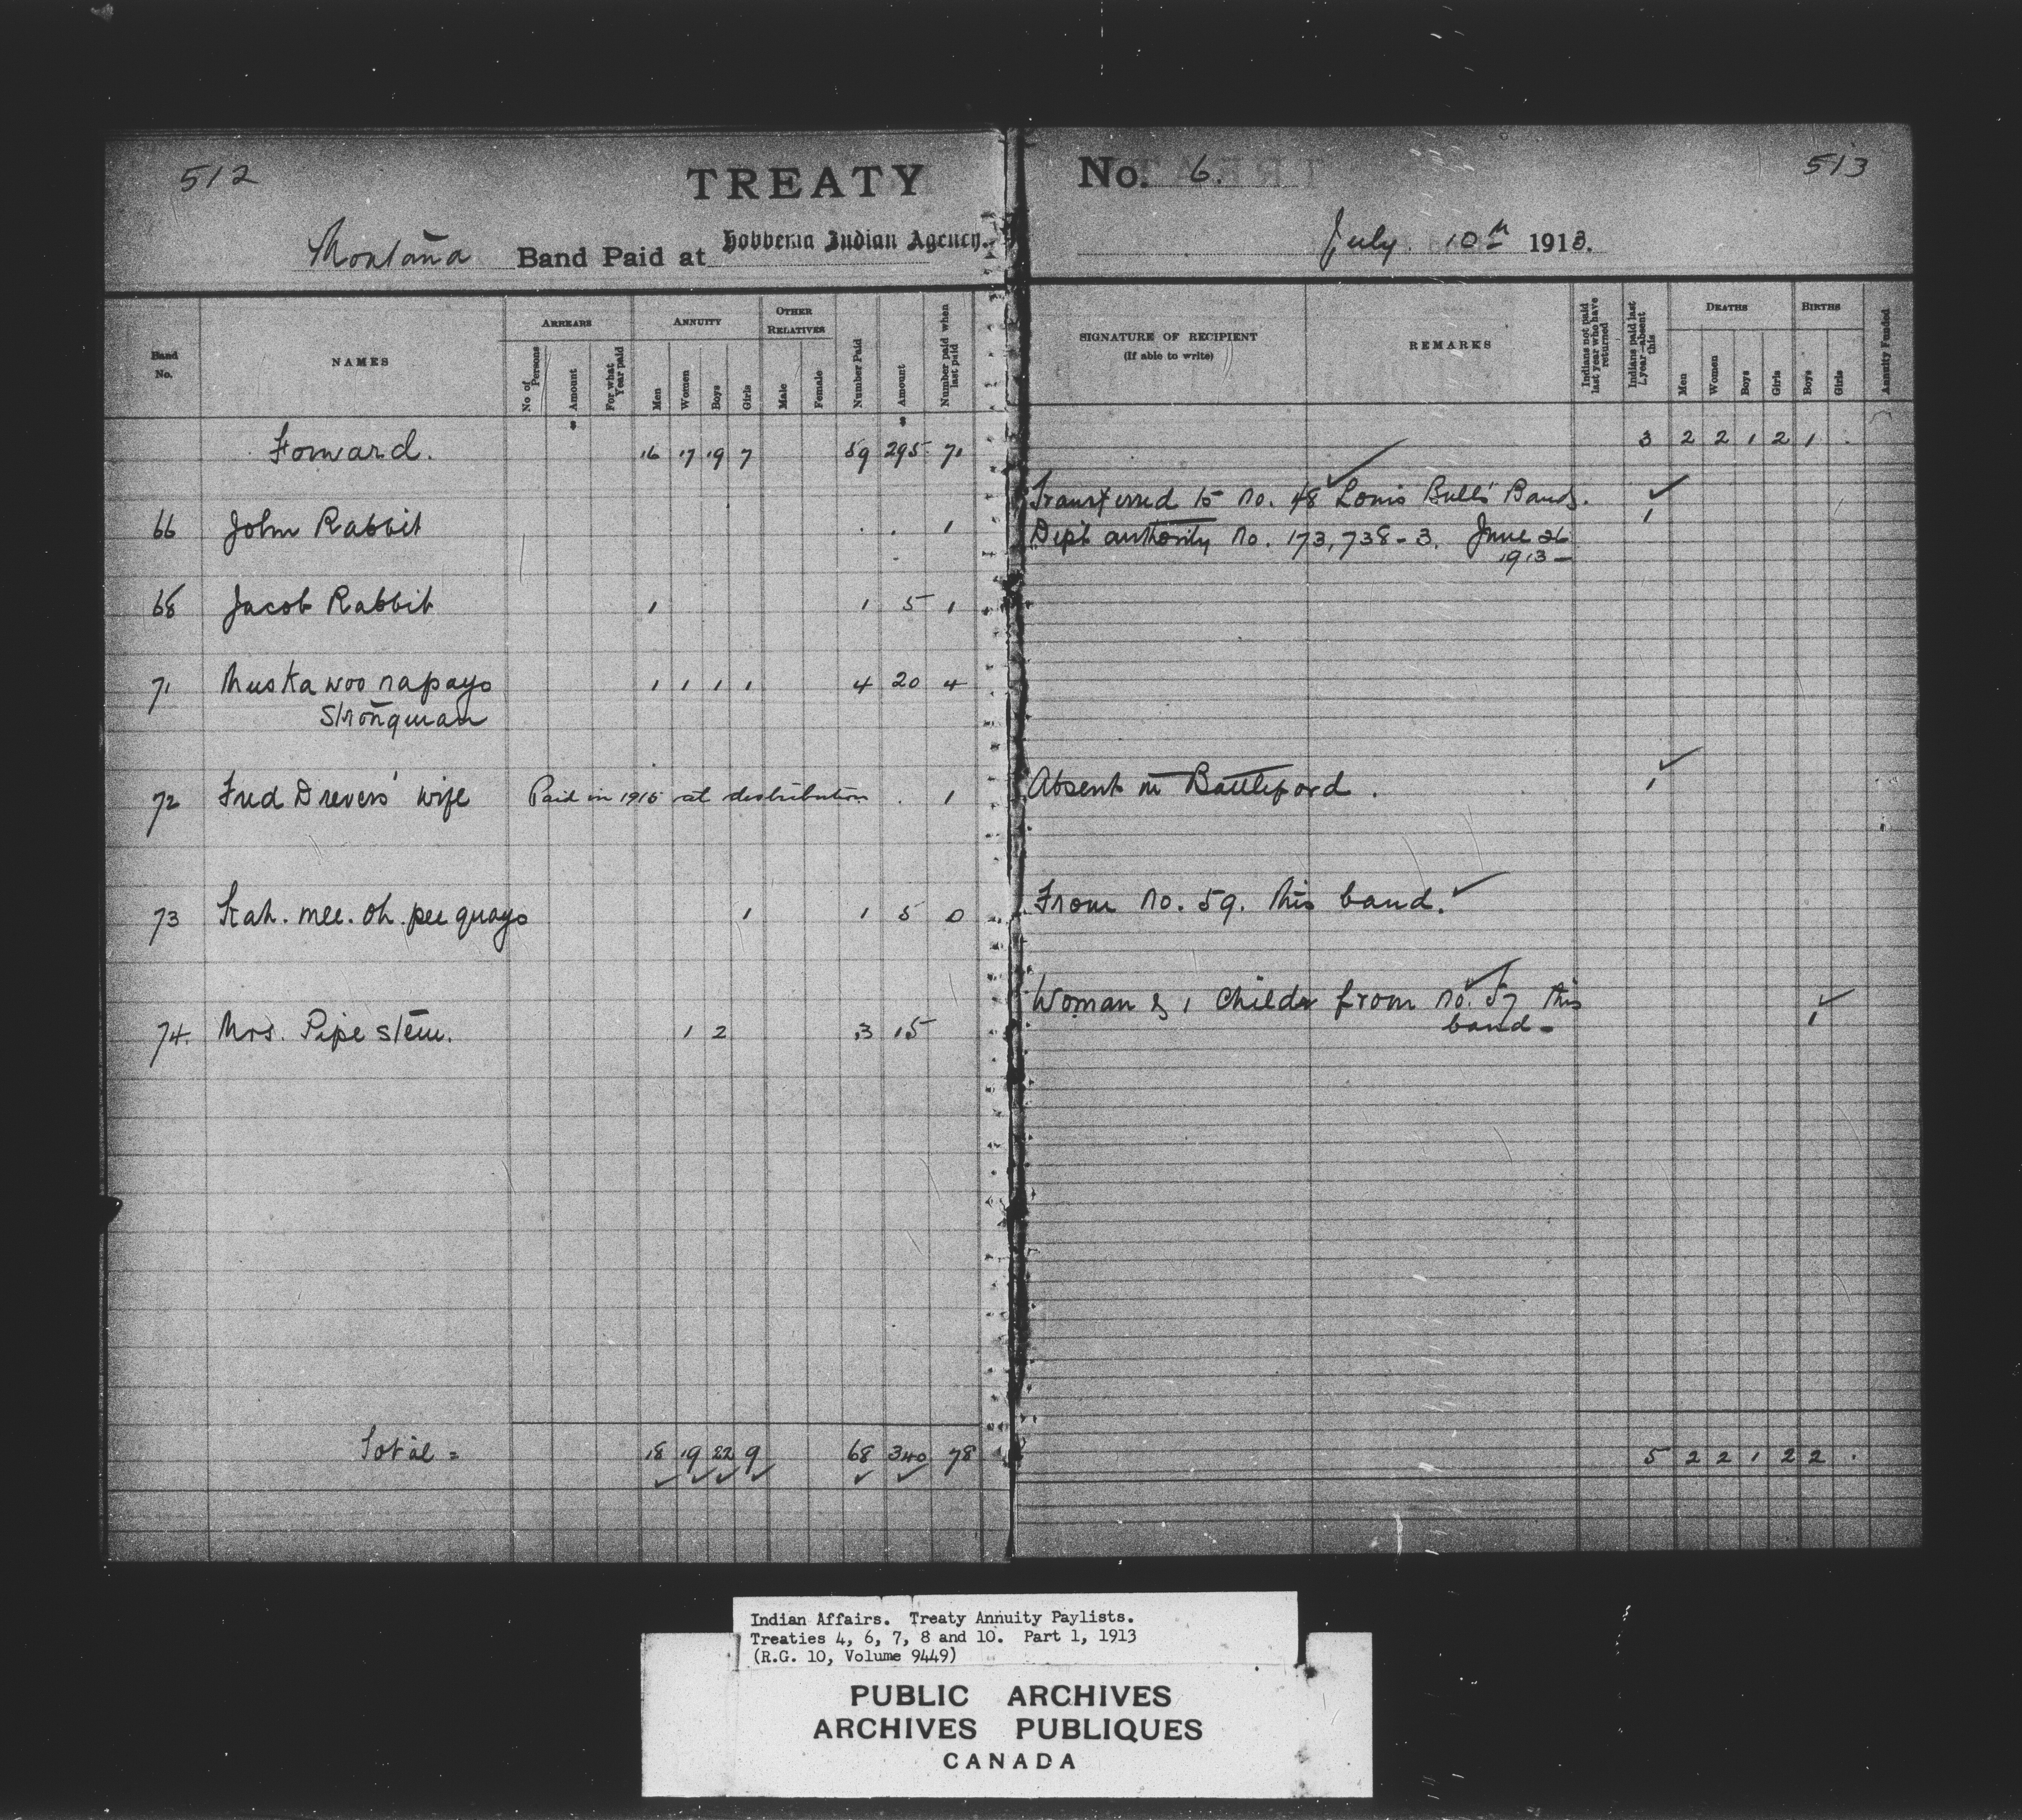 512
TREATY
No. 6.
513
Montana Band Paid at Hobbema Indian Agency.
July 10th 1913.
Band No.
NAMES
ARREARS
No. of Persons
Amount
For what Year paid
ANNUITY
Men
Women
Boys
Girls
OTHER RELATIVES
Male
Female
Number Paid
Amount
Number paid when last paid
SIGNATURE OF RECIPIENT
(If able to write)
REMARKS
Indians not paid last year who have returned
Indians paid last year—absent this
DEATHS
Men
Women
Boys
Girls
BIRTHS
Boys
Girls
Annuity Funded
Forward. 16 17 19 7 59 295 71 3 2 2 1 2 1 .
Transferred to No. 48 Louis Bulls' Band.
66 John Rabbit . 1 Dept authority No. 173,738-3. June 26 1
1913-
68 Jacob Rabbit 1 1 5 1
71 Muskawoo napayo 1 1 1 1 4 20 4
Strongman
72 Fred Drevers' wife Paid in 1915 at distribution . 1 Absent in Battleford. 1
73 Kah. mee. oh. pee quayo 1 1 5 0 From No. 59. this band.
74. Mrs. Pipe stem. 1 2 3 15 Woman & 1 Childr from No. 57 this 1
band-
Total = 18 19 22 9 68 340 78 5 2 2 1 2 2 .
Indian Affairs. Treaty Annuity Paylists.
Treaties 4, 6, 7, 8 and 10. Part 1, 1913
(R.G. 10, Volume 9449)
PUBLIC ARCHIVES
ARCHIVES PUBLIQUES
CANADA